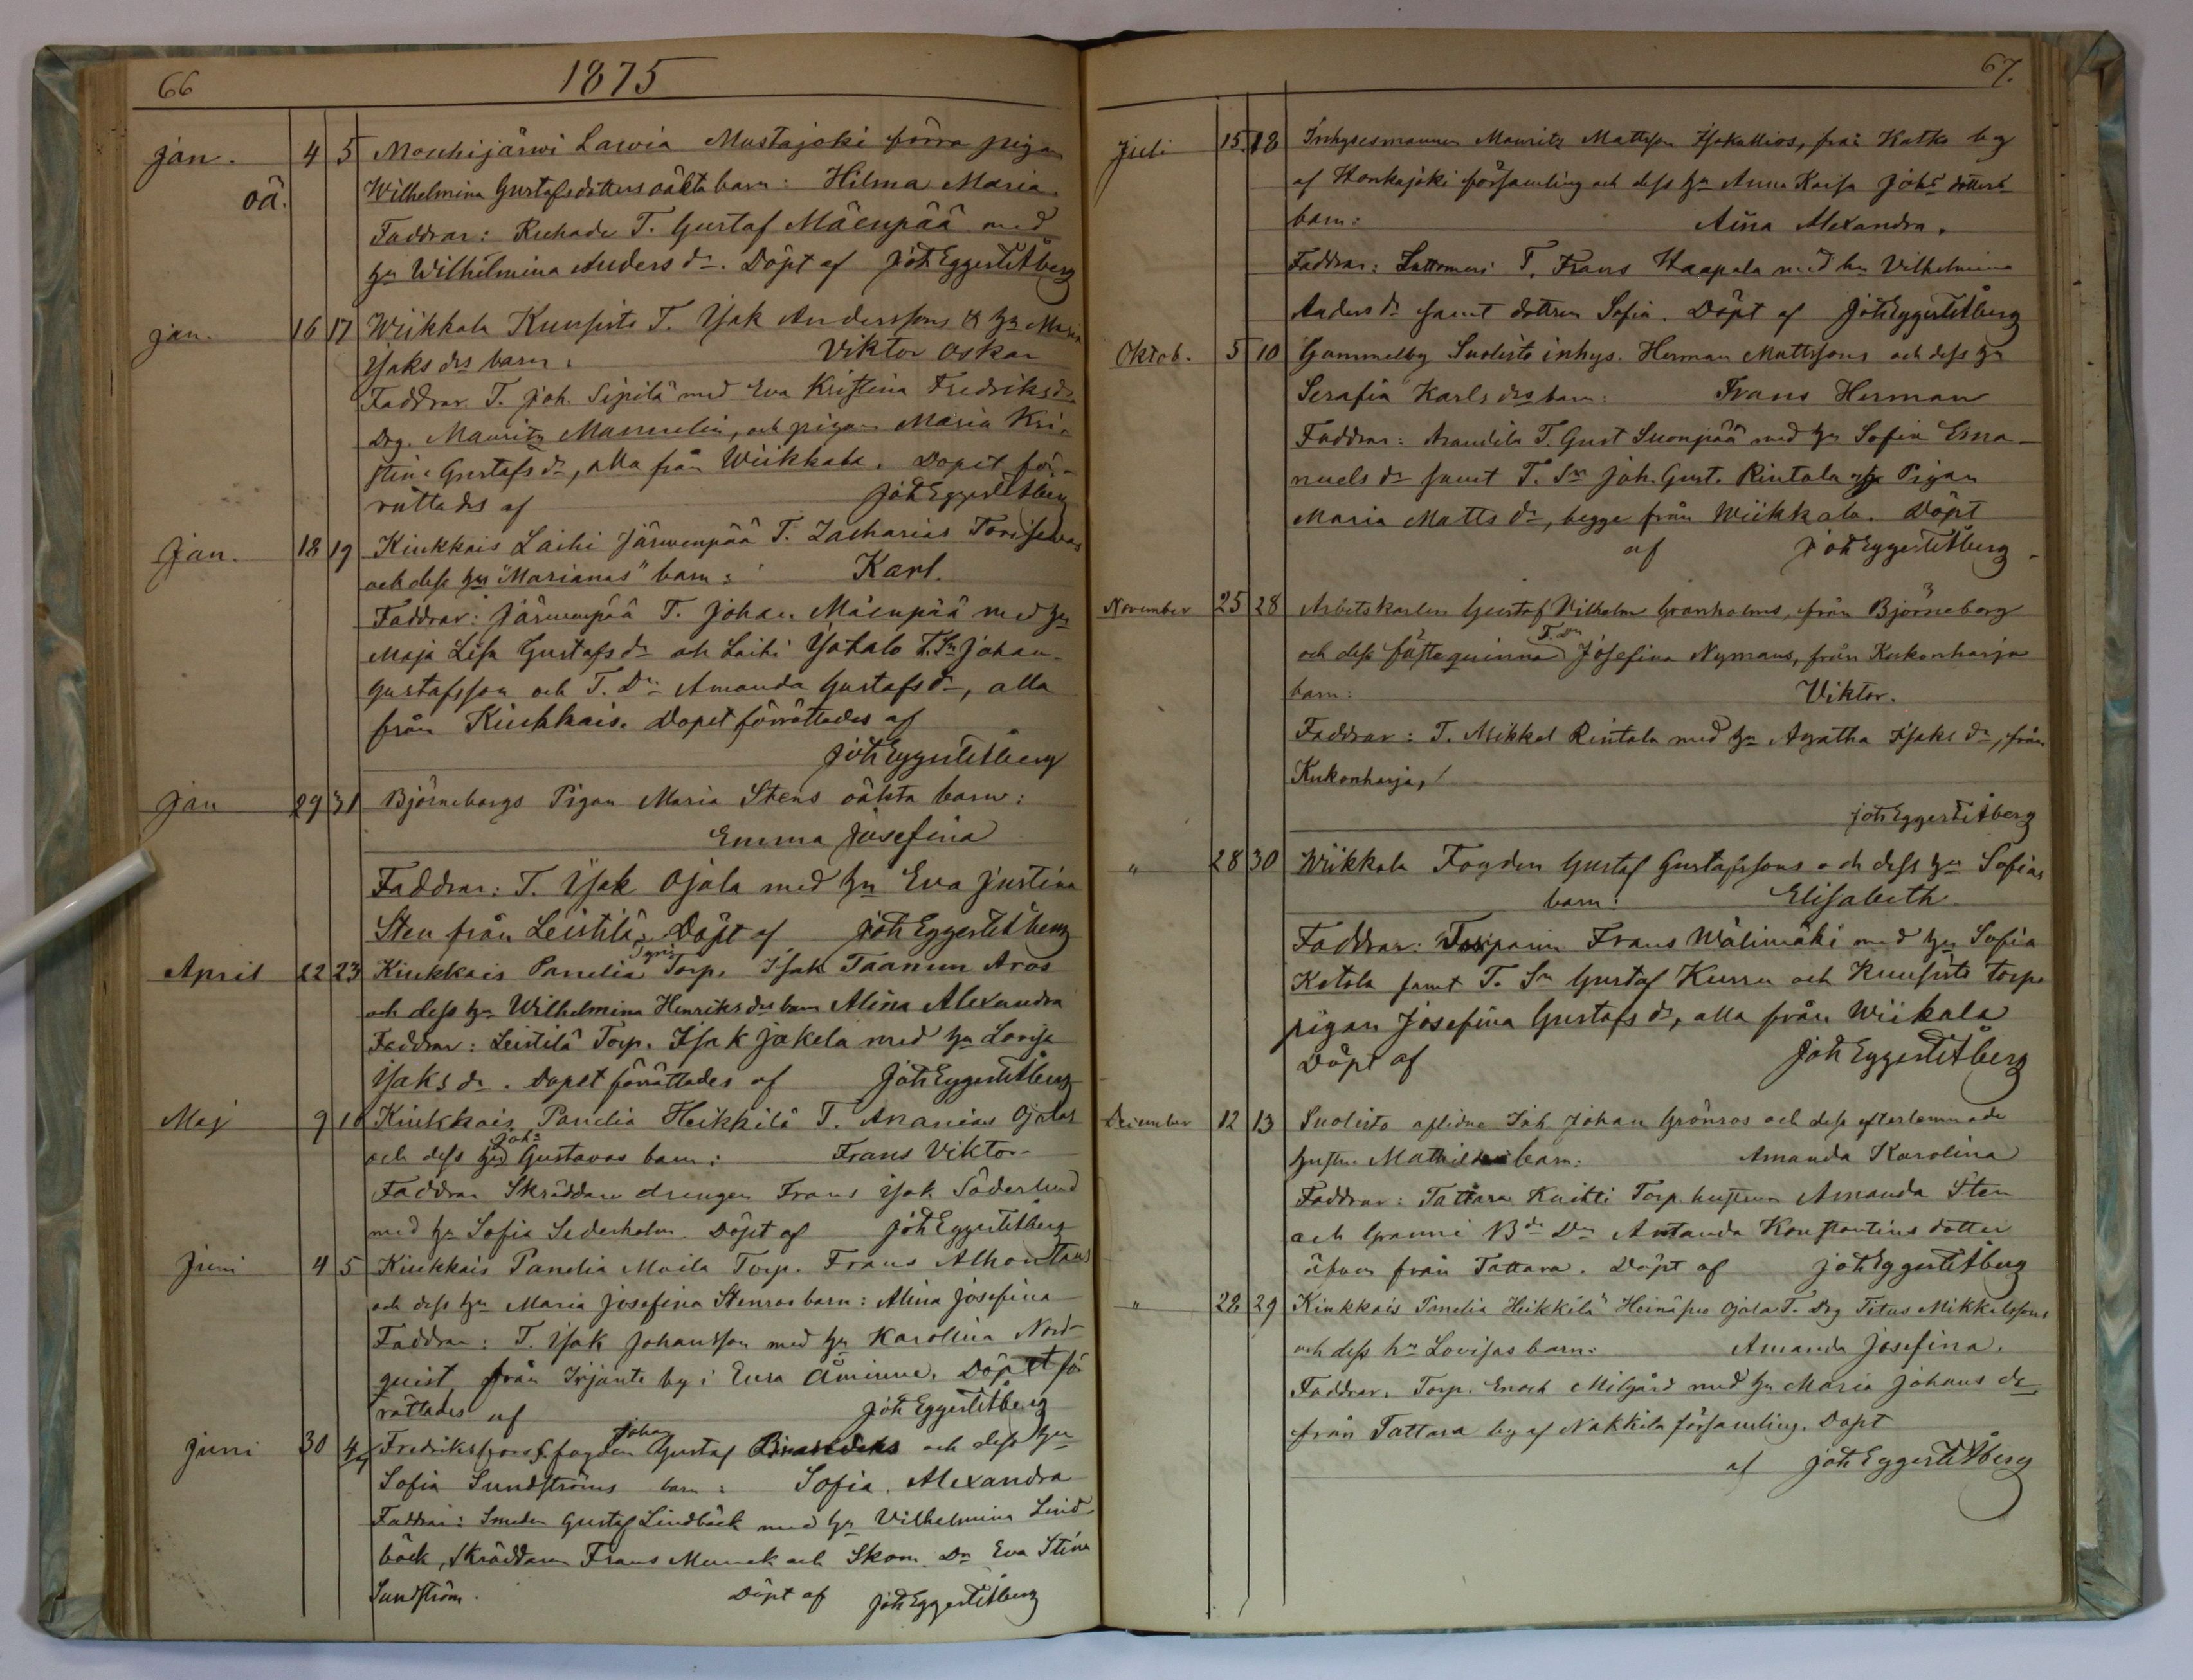 66
1875
jan. 4 5 Mouhijärwi Lawia Mustajoki förra pigan
oä. Wilhelmina Gustafsdotters oäkta barn: Hilma Maria
Faddrar: Ruhade T. Gustaf Mäenpää med
hu Wilhelmina Anders dr. Döpt af Joh Eggert Åberg
jan. 16 17 Wiikkala Kuusisto T. Isak Anderssons & hu Maria
Isaks drs barn: Viktor Oskar
Faddrar T. Joh. Sipilä med Eva Kristina Fredriksdr
Drg. Mauritz Mannelin, och pigan Maria Kri-
stina Gustafs dr, alla från Wiikkala. Dopet för-
rättades af Joh Eggert Åberg
Jan. 18 19 Kiukkais Laihi Järwenpää T. Zacharias
och dess hus "Marianas" barn: Karl.
Faddrar: Järwenpää T. Johan Mäenpää med hu
Maja Lisa Gustafs dr och Laihi Isotalo T. Sn Johan
Gustafsson och T. Dn Amanda Gustafs dr, alla
från Kiukkais. Dopet förrättades af
Joh Eggert Åberg
Jan 29 31 Björneborgs Pigan Maria Stens oäkta barn:
Emma Josefina
Faddrar: T. Isak Ojala med hu Eva Justina
Sten från Leistilä. Döpt af Joh Eggert Åberg
April 22 23 Kiukkais Panelia Torp. Isak Taanun Aros
och dess hu Wilhelmina Henriks drs barn Alina Alexandra
Faddrar: Leistilä Torp. Isak Jakela med hu Lovisa
Isaks dr. Dopet förrättades af Joh Eggert Åberg
Maj 9 10 Kiukkais Panelia Heikkilä T. Ananias Ojalas
och dess hu Gustavas barn: Frans Viktor
Faddrar Skräddare drengen Frans Isak Söderlund
med hu Sofia Sederholm. Döpt af Joh Eggert Åberg
Juni 4 5 Kiukkais Panelia Moila Torp. Frans Alhontaus
och dess hu Maria Josefina Stenros barn: Alina Josefina
Faddrar: T. Isak Johansson med hu Karolina Nord-
quist, från Irjante by i Eura Åminne. Döpet för
rättades af Joh Eggert Åberg
Johan
Juni 30 4/7 Fredriksfors f. fogden Gustaf och dess hu
Sofia Sundströms barn: Sofia Alexandra
Faddrar: Smeden Gustaf Lindbäck med hu Vilhelmina Lind-
bäck, Skräddaren Frans Munck och Skom. Dn Eva Stina
Sundström. Döpt af Joh Eggert Åberg
67.
Juli 15. 18 Inhysesmannen Mauritz Mattsson Isokallios, från Katko by
af Honkajoki församling och dess hu Anna Kaisa Johs dotters
barn: Aina Alexandra.
Faddrar: Lattomeri T. Frans Haapala med hu Vilhelmina
Anders dr samt dottren Sofia. Döpt af Joh Eggert Åberg
Oktob. 5 10 Gammelby Suolisto inhys. Herman Mattssons och dess hu
Serafia Karls drs barn: Frans Herman
Faddrar: Arantila T. Gust Suonpää med hu Sofia Ema-
nuels dr samt T. Sn Joh. Gust. Rintala och Pigan
Maria Matts dr, begge från Wiikkala. Döpt
af Joh Eggert Åberg
November 25 28 Arbetskarlen Gustaf Vilhelm Granholms, från Björneborg
T. Dn
och dess fästequinna Josefina Nymans, från Kukonharja
barn: Viktor.
Faddrar: T. Mikkel Rintala med hu Agatha Isaks dr, från
Kukonharja,
Joh Eggert Åberg
" 28 30 Wiikkala Fogden Gustaf Gustafssons och dess hu Sofias
barn: Elisabeth
Faddrar: Torparen Frans Wälimäki med hu Sofia
Ketola samt T. Sn Gustaf Kurru och Kuusisto torps
pigan Josefina Gustafs dr, alla från Wiikala
Döpt af Joh Eggert Åberg
December 12 13 Suolisto aflidne Inh Johan Grönros och dess efterlemnade
hustru Mathildas barn: Amanda Karolina
Faddrar: Tattara Knihti Torp. hustrun Amanda Sten
och Granni Bde Dn Amanda Konstantins dotter
äfven från Tattara. Döpt af Joh Eggert Åberg
" 28 29 Kiukkais Panelia Heikkilä Ojala T. Drg Titus Mikkelssons
och dess hu Lovisas barn: Amanda Josefina.
Faddrar. Torp. Enoch Milgård med hu Maria Johans dr
från Tattara by af Nakkila församling. Döpt
af Joh Eggert Åberg